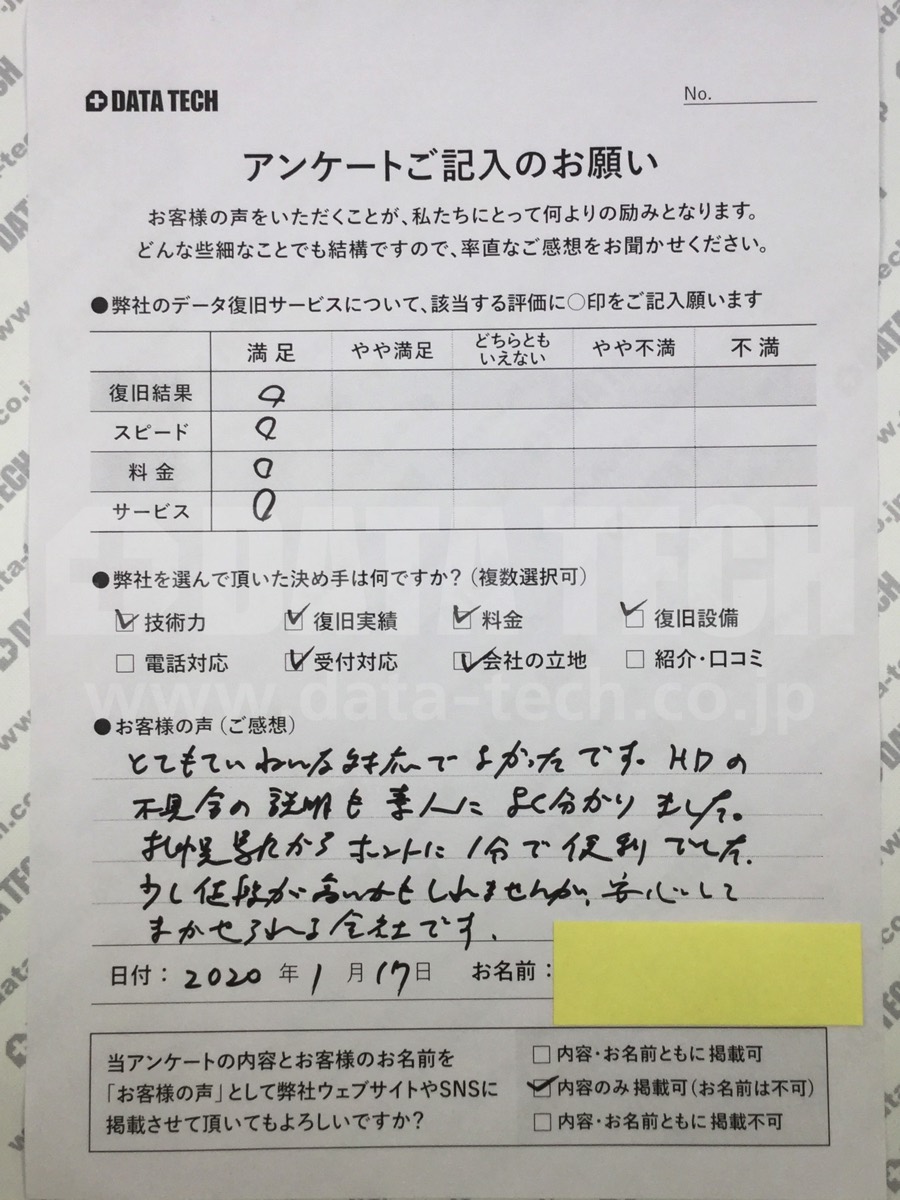 DATA TECH
No.
アンケートご記入のお願い
お客様の声をいただくことが、私たちにとって何よりの励みとなります。
どんな些細なことでも結構ですので、率直なご感想をお聞かせください。
●弊社のデータ復旧サービスについて、該当する評価に○印をご記入願います
満足 やや満足 どちらとも いえない やや不満 不満
復旧結果 ○
スピード ○
料金 ○
サービス ○
●弊社を選んで頂いた決め手は何ですか?(複数選択可)
☑技術力 ☑復旧実績 ☑料金 ☑復旧設備
□電話対応 ☑受付対応 ☑会社の立地 □紹介・口コミ
DATA TECH
www.data-tech.co.jp
●お客様の声(ご感想)
とてもていねいな対応でよかったです。HDの
不具合の説明も素人によく分かりました。
札幌駅からホントに1分で便利でした。
少し値段が高いかもしれませんが、安心して
まかせられる会社です。
日付:2020年1月17日 お名前:
当アンケートの内容とお客様のお名前を
「お客様の声」として弊社ウェブサイトやSNSに
掲載させて頂いてもよろしいですか?
□内容・お名前ともに掲載可
☑内容のみ掲載可(お名前は不可)
□内容・お名前ともに掲載不可